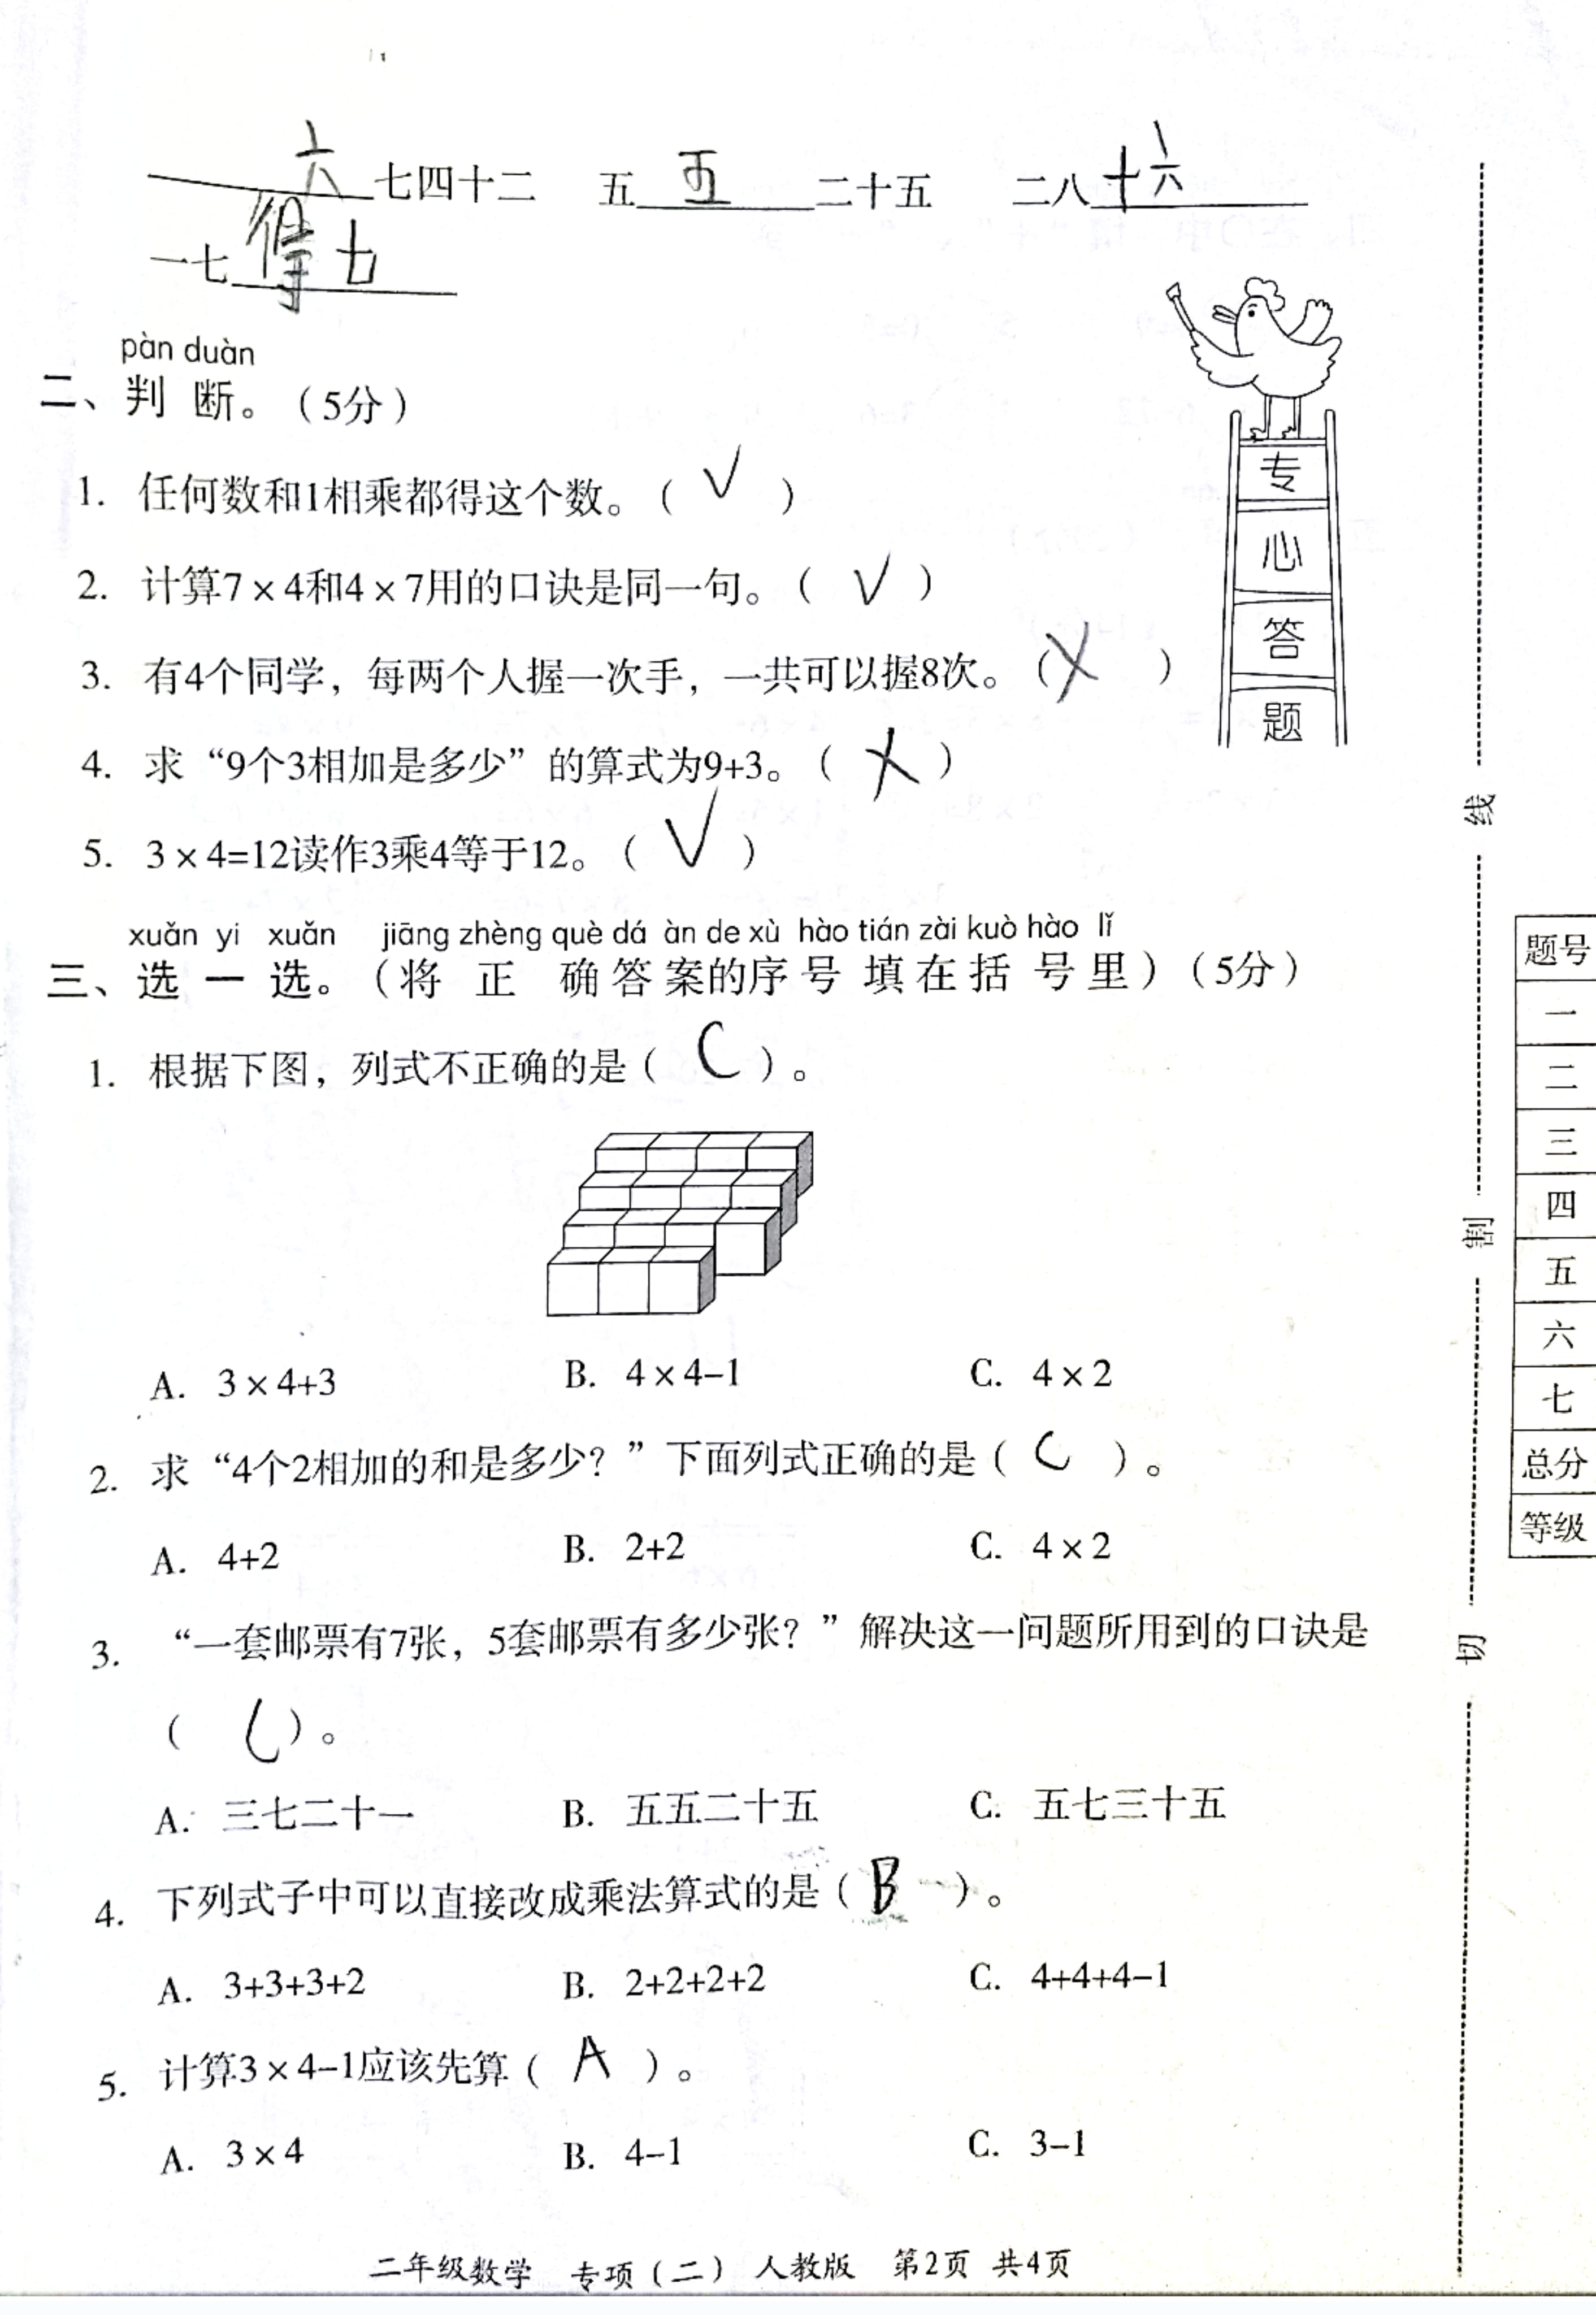 六七四十二 五五二十五 二八十六
一七得七
pàn duàn
二、判断。(5分)
1. 任何数和1相乘都得这个数。( √ )
2. 计算7×4和4×7用的口诀是同一句。( √ )
3. 有4个同学，每两个人握一次手，一共可以握8次。( × )
4. 求“9个3相加是多少”的算式为9+3。( × )
5. 3×4=12读作3乘4等于12。( √ )
xuǎn yi xuǎn jiāng zhèng què dá àn de xù hào tián zài kuò hào lǐ
三、选一选。(将正确答案的序号填在括号里)(5分)
1. 根据下图，列式不正确的是( C )。
A. 3×4+3 B. 4×4-1 C. 4×2
2. 求“4个2相加的和是多少？”下面列式正确的是( C )。
A. 4+2 B. 2+2 C. 4×2
3. “一套邮票有7张，5套邮票有多少张？”解决这一问题所用到的口诀是
( C )。
A. 三七二十一 B. 五五二十五 C. 五七三十五
4. 下列式子中可以直接改成乘法算式的是( B )。
A. 3+3+3+2 B. 2+2+2+2 C. 4+4+4-1
5. 计算3×4-1应该先算( A )。
A. 3×4 B. 4-1 C. 3-1
二年级数学 专项(二) 人教版 第2页 共4页
专
心
答
题
线
割
切
题号
一
二
三
四
五
六
七
总分
等级